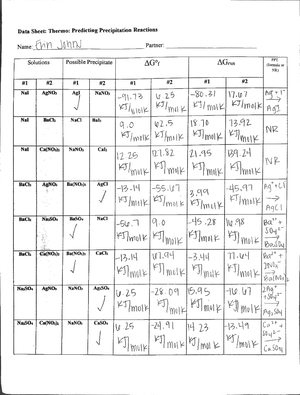 Data Sheet: Thermo: Predicting Precipitation Reactions
Name: Erin Johns Partner:
Solutions Possible Precipitate ΔG°f ΔGrxn PPT (formula or NR)
#1 #2 #1 #2 #1 #2 #1 #2
NaI AgNO₃ AgI NaNO₃ -91.73 KJ/molk 6.25 KJ/molk -80.31 KJ/molk 17.67 KJ/molk Ag⁺ + I⁻ → AgI
NaI BaCl₂ NaCl BaI₂ 9.0 KJ/molk 62.5 KJ/molk 18.70 KJ/molk 73.92 KJ/molk NR
NaI Ca(NO₃)₂ NaNO₃ CaI₂ 12.25 KJ/molk 127.82 KJ/molk 21.95 KJ/molk 139.24 KJ/molk NR
BaCl₂ AgNO₃ Ba(NO₃)₂ AgCl -13.14 KJ/molk -55.67 KJ/molk 3.99 KJ/molk -45.97 KJ/molk Ag⁺ + Cl → AgCl
BaCl₂ Na₂SO₄ BaSO₄ NaCl -56.7 KJ/molk 9.0 KJ/molk -45.28 KJ/molk 16.98 KJ/molk Ba²⁺ + SO₄²⁻ → BaSO₄
BaCl₂ Ca(NO₃)₂ Ba(NO₃)₂ CaCl₂ -13.14 KJ/molk 67.94 KJ/molk -3.44 KJ/molk 77.64 KJ/molk Ba²⁺ + 2NO₃⁻ → Ba(NO₃)₂
Na₂SO₄ AgNO₃ NaNO₃ Ag₂SO₄ 6.25 KJ/molk -28.09 KJ/molk 15.95 KJ/molk -16.67 KJ/molk 2Ag⁺ + SO₄²⁻ → Ag₂SO₄
Na₂SO₄ Ca(NO₃)₂ NaNO₃ CaSO₄ 6.25 KJ/molk -24.91 KJ/molk 14.23 KJ/molk -13.49 KJ/molk Ca²⁺ + SO₄²⁻ → CaSO₄